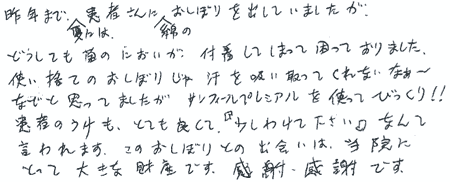 昨年まで、患者さんに、おしぼりを出していましたが、
夏には、 綿の
どうしても歯のにおいが、付着してしまって困っておりました。
使い捨てのおしぼりじゃ汗を吸い取ってくれないなぁ〜
などと思ってましたがサンフィールプレミアルを使ってびっくり!!
患者のうけも、とても良くて、『少しわけて下さい』なんて
言われます。このおしぼりとの出会いは、当院に
とって大きな財産です。感謝・感謝です。